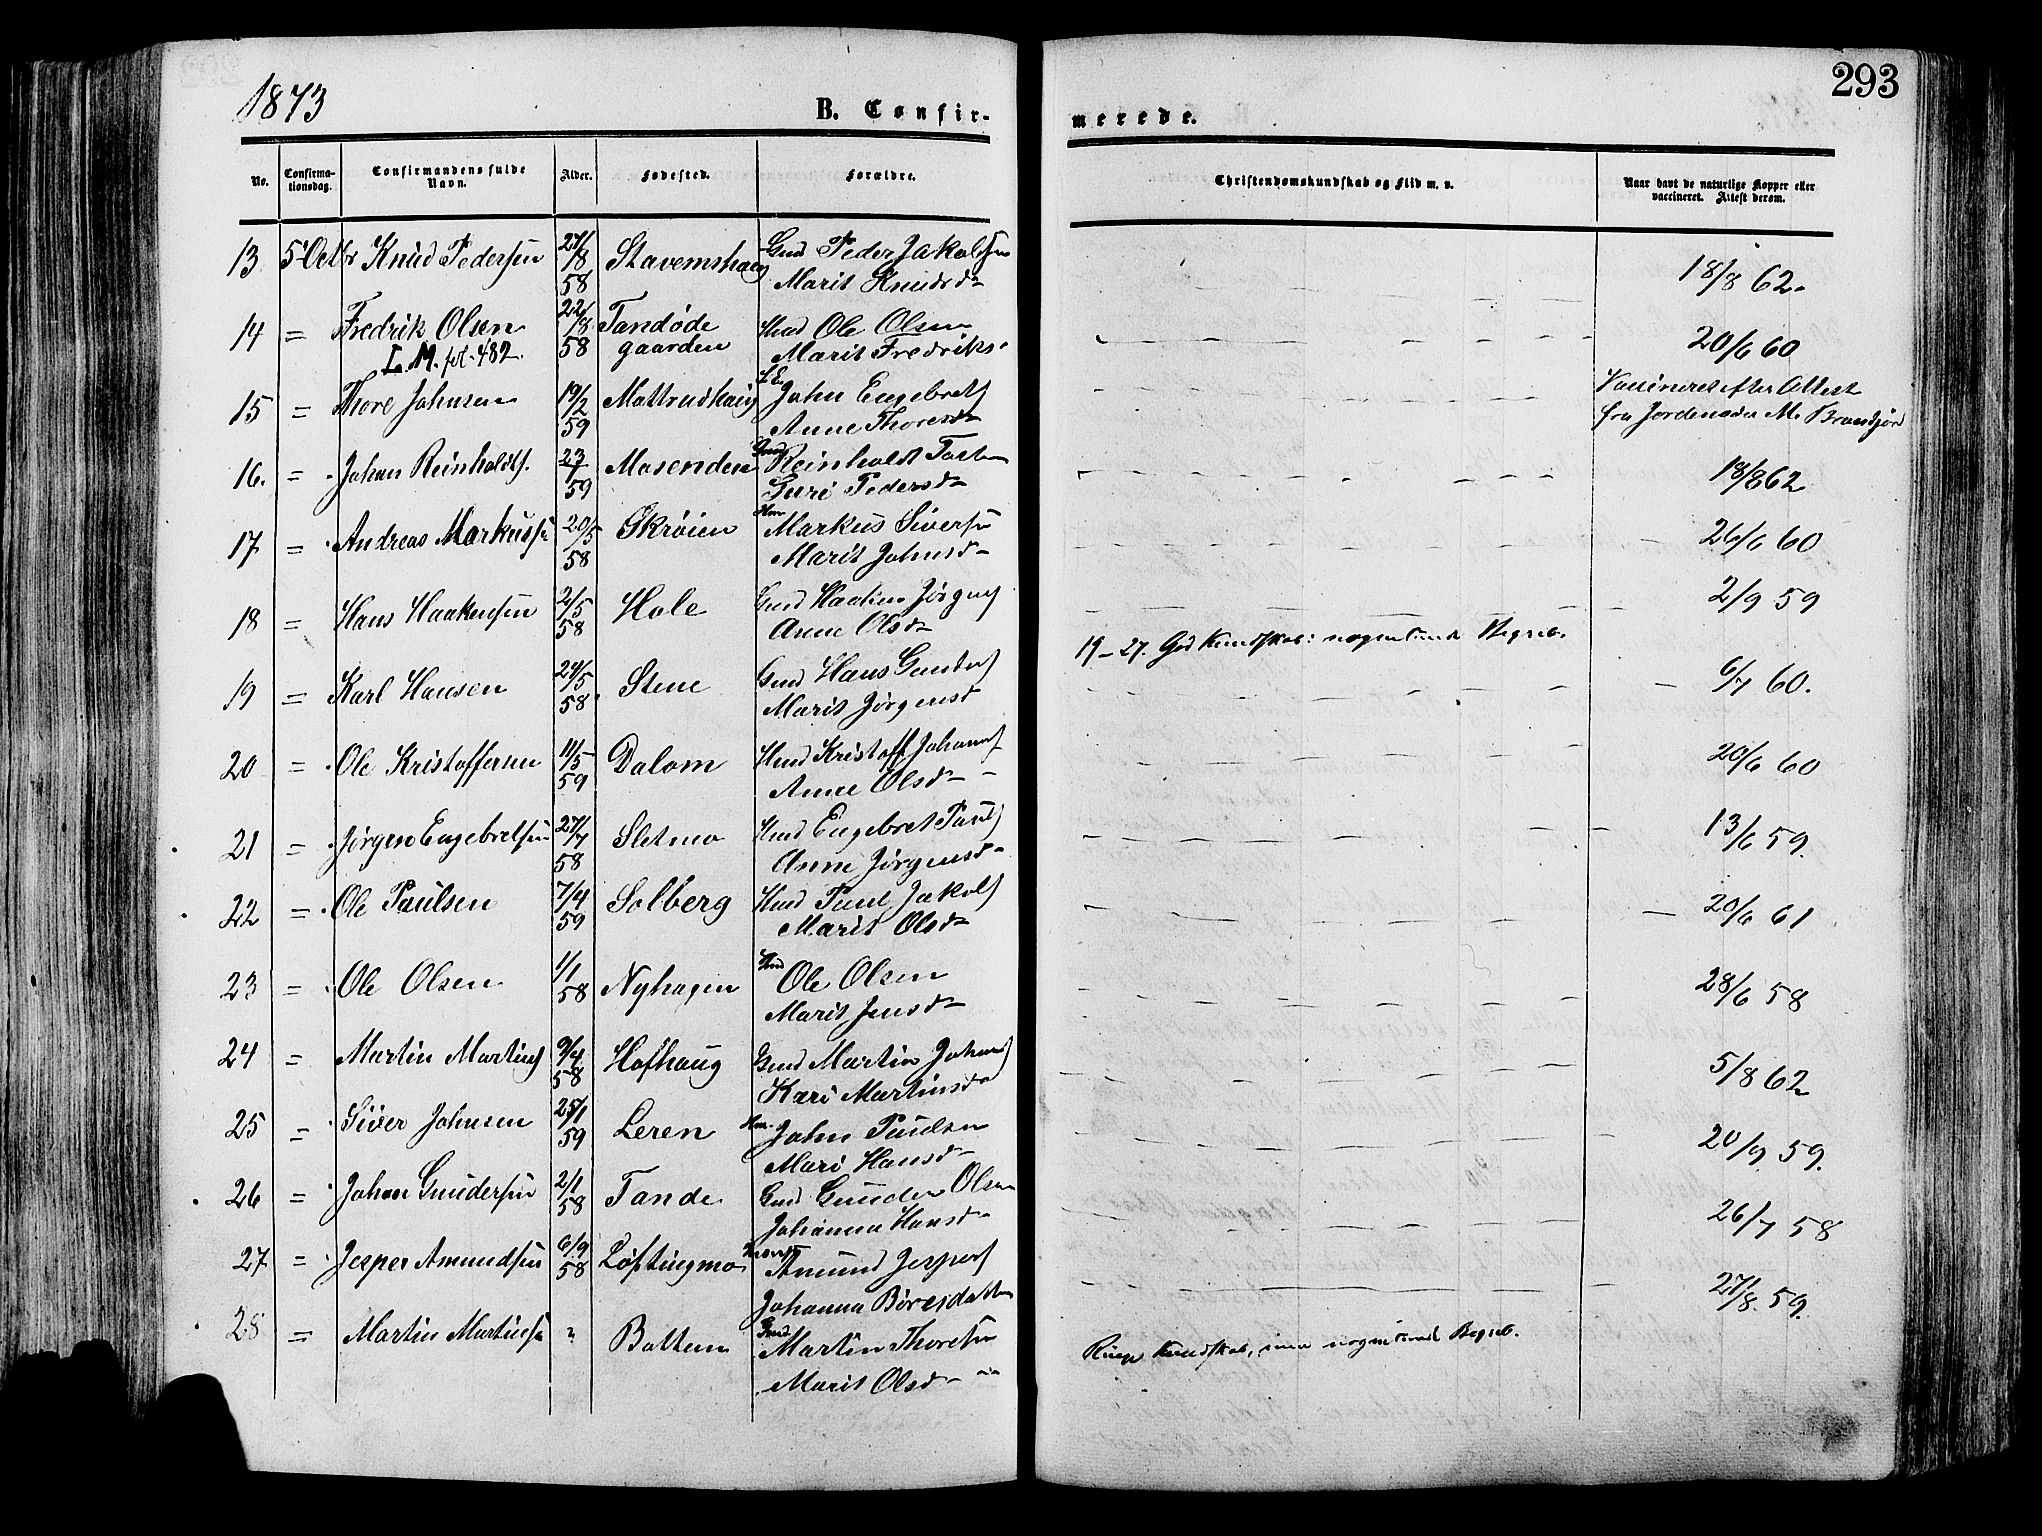 1873
B. Confir-
merede.
293
No.
Confirma-
tionsdag.
Confirmandens fulde
Navn.
Alder.
Fødested.
Forældre.
Christendomskundskab og Flid m. v.
Naar havt de naturlige Kopper eller
vaccineret. Attest derom.
13 5 Octbr Knud Pedersen 27/8 58 Stavemshaug Gmd Peder Jakobsen
Marit Knudsd 18/8 62.
14 = Fredrik Olsen 22/8 58 Tandøde Hmd Ole Olsen
I. M. fol. 482. gaarden Marit Fredriks 20/6 60
15 = Thore Johnsen 19/2 59 Mattrudhaug John Engebrets
Anne Thoresd Vaccineret efter Attest
fra Jordemoder M.
16. = Johan Reinholdts. 23/1 59 Mosenden Gmd Reinholdt
Guri Pedersd 18/8 62
17 = Andreas Markussen 20/5 58 Skrøien Markus Siversen
Marit Johnsd 26/6 60
18 = Hans Haakensen 2/5 58 Hole Gmd Haaken Jørgens
Anne Olsd 2/9 59
19-27. God Kundskab: nogenlunde Begreb.
19 = Karl Hansen 24/5 58 Stene Gmd Hans Gunders
Marit Jørgensd 6/7 60.
20 = Ole Kristoffersen 11/5 59 Dalom Hmd Kristoff Johans
Anne Olsd 20/6 60
21 = Jørgen Engebretsen 27/7 58 Sletmo Hmd Engebret Pauls
Anne Jørgensd 13/6 59.
22 = Ole Paulsen 7/4 59 Solberg Hmd Paul Jakobs
Marit Olsd 20/6 61
23 = Ole Olsen 1/1 58 Nyhagen Hmd Ole Olsen
Marit Jensd 28/6 58
24 = Martin Martins 9/4 58 Hofhaug Gmd Martin Johans
Kari Martinsd 5/8 62
25 = Siver Johnsen 25/1 59 Leren John Paulsen
Mari Hansd 20/9 59.
26 = Johan Gundersen 2/1 58 Tande Gmd Gunder Olsen
Johanna Hansd 26/7 58
27 = Jesper Amundsen 6/9 58 Løftingmo Amund Jespers
Johanna Børesdatter 27/8 59.
28 = Martin Martinsen " Battem Gmd Martin Thoresen
Marit Olsd
Ringe Kundskab, men nogenlunde Begreb.